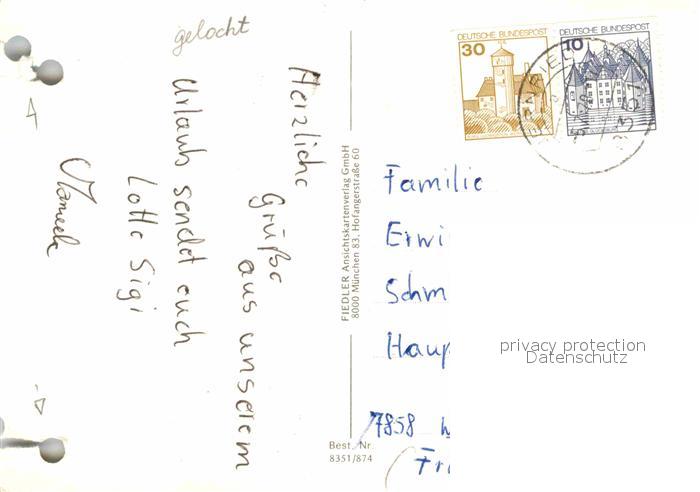 gelocht
Herzliche
Grüße
aus unserem
Urlaub sendet euch
Lotte Sigi
Manuela
FIEDLER Ansichtskartenverlag GmbH
8000 München 83, Hofangerstraße 60
Best. Nr.
8351/874
DEUTSCHE BUNDESPOST
30
DEUTSCHE BUNDESPOST
10
Familie
Erwi
Schm
Haup
7858
privacy protection
Datenschutz